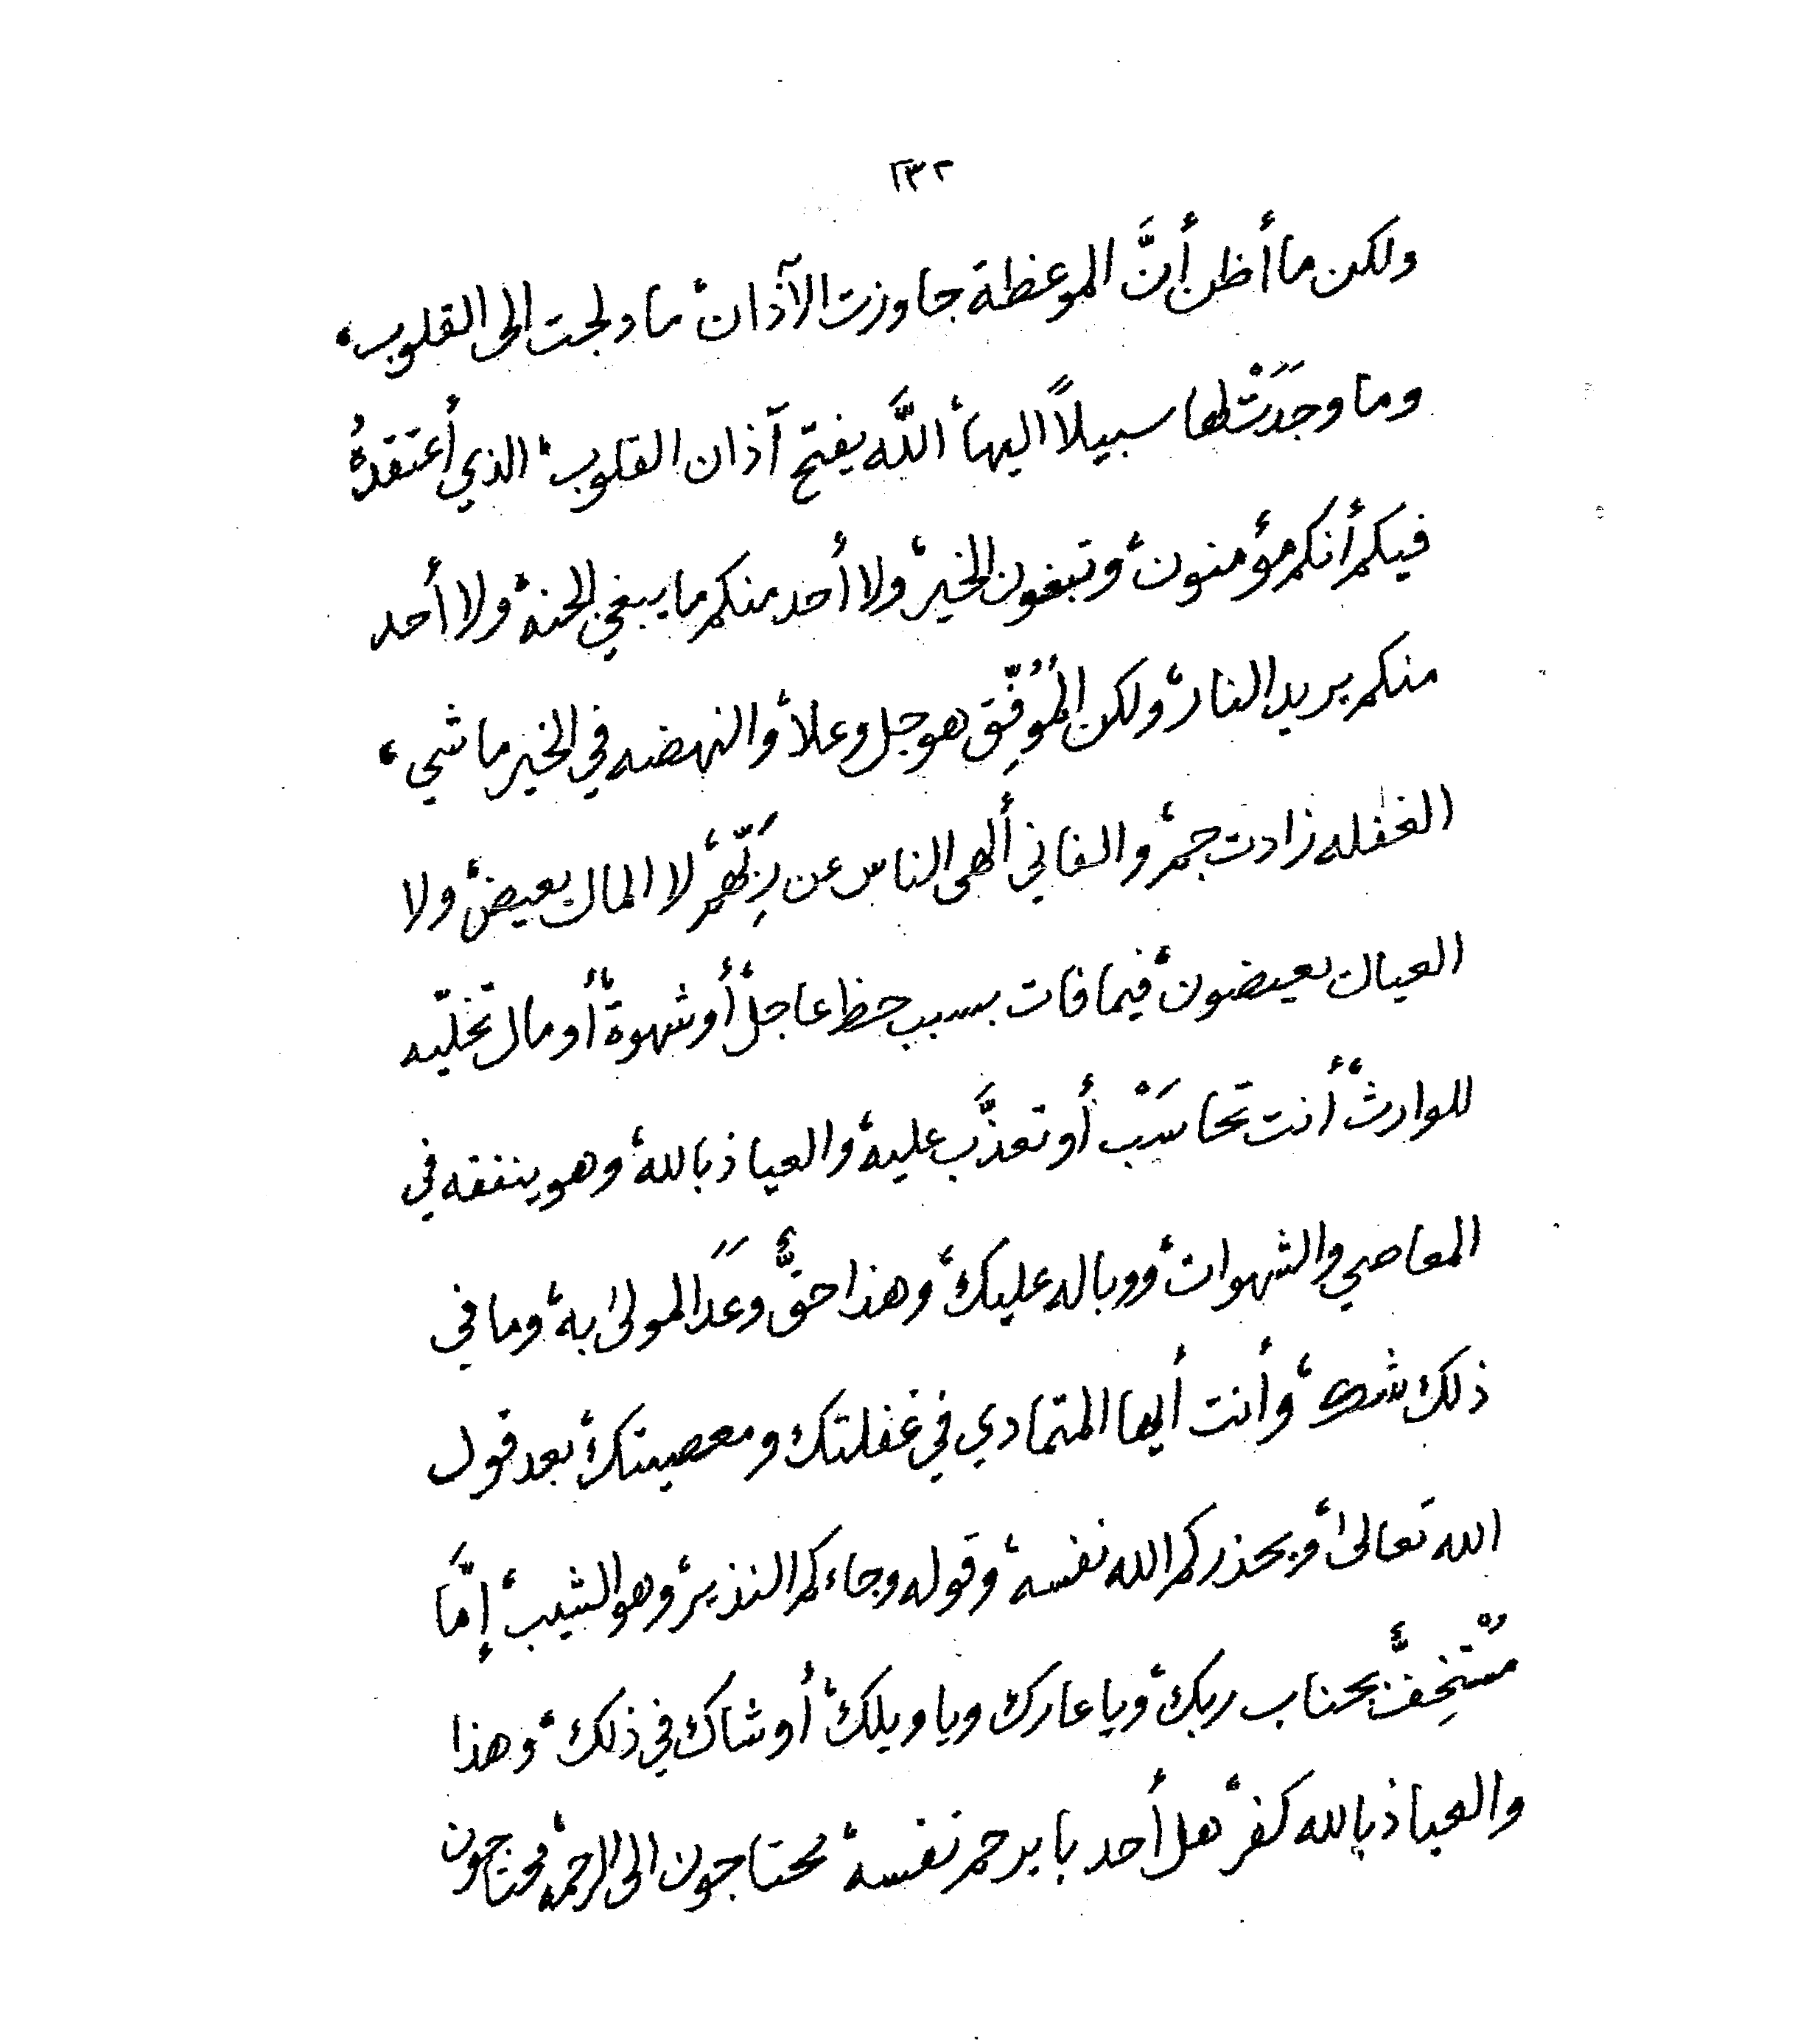 ٢٣٢
ولكن ما أظن أنَّ الموعظة جاوزت الآذان، ما ولجت الى القلوب،
وما وجَدَتْ لها سبيلاً اليها، اللَّه يفتح آذان القلوب، الذي أعتقدهُ
فيكم أنكم مؤمنون، وتبغون الخير، ولا أحد منكم ما يبغي الجنة، ولا أحد
منكم يريد النار، ولكن المُوَفِّق هو جل وعلا، والنهضه في الخير ما شي،
الغفله زادت جم، والفاني ألهى الناس عن رَبِّهم، لا المال يعيض، ولا
العيال يعيضون، فيما فات بسبب حظ عاجل، أو شهوة، أو مال تخلّيه
للوارث، أنت تحاسَبْ أو تعذَّب عليه، والعياذ بالله، وهو ينفقه في
المعاصي والشهوات، ووباله عليك، وهذا حقٌّ وعَدَ المولى به، وما في
ذلك شك، وأنت أيها المتمادي في غفلتك ومعصيتك، بعد قول
الله تعالى، ويحذركم الله نفسه، وقوله وجاءكم النذير، وهو الشيب، إمَّا
مُسْتخِفٌّ بجناب ربك، ويا عارك ويا ويلك، أو شاك في ذلك، وهذا
والعياذ بالله كفر، هل أحد با يرحم نفسه، محتاجون الى الرحمة، محتاجون